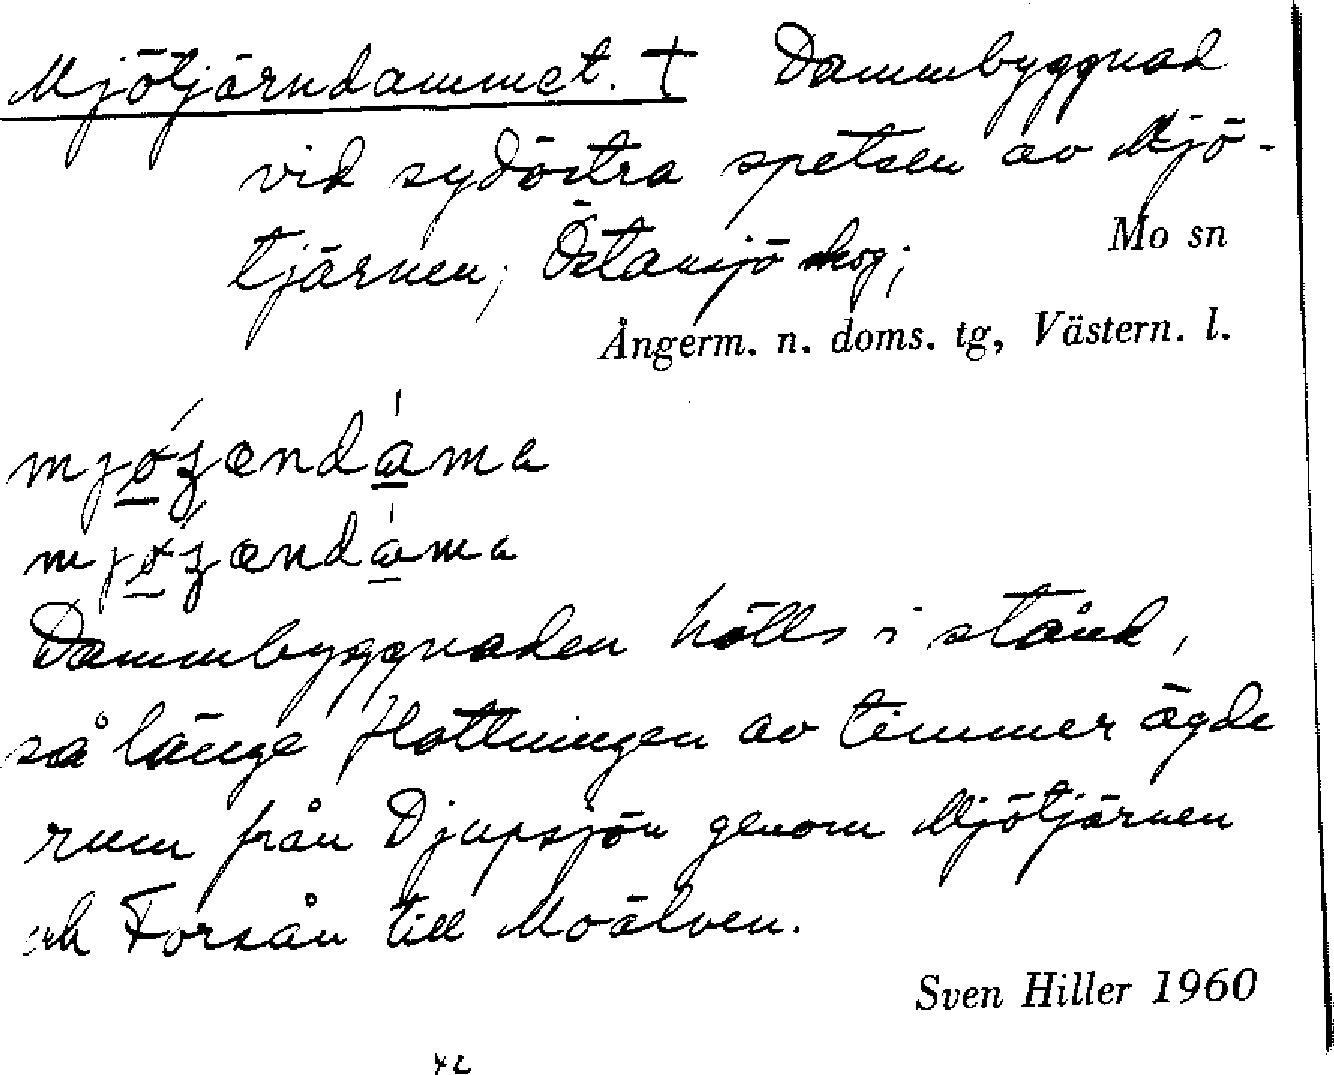 Mjötjärndammet. † Dammbyggnad
vid sydöstra spetsen av Mjö-
tjärnen, Östansjö skog;
Mo sn
Ångerm. n. doms. tg, Västern. l.
Dammbyggnaden hölls i stånd,
så länge flottningen av timmer ägde
rum från Djupsjön genom Mjötjärnen
och Forsån till Moälven.
Sven Hiller 1960